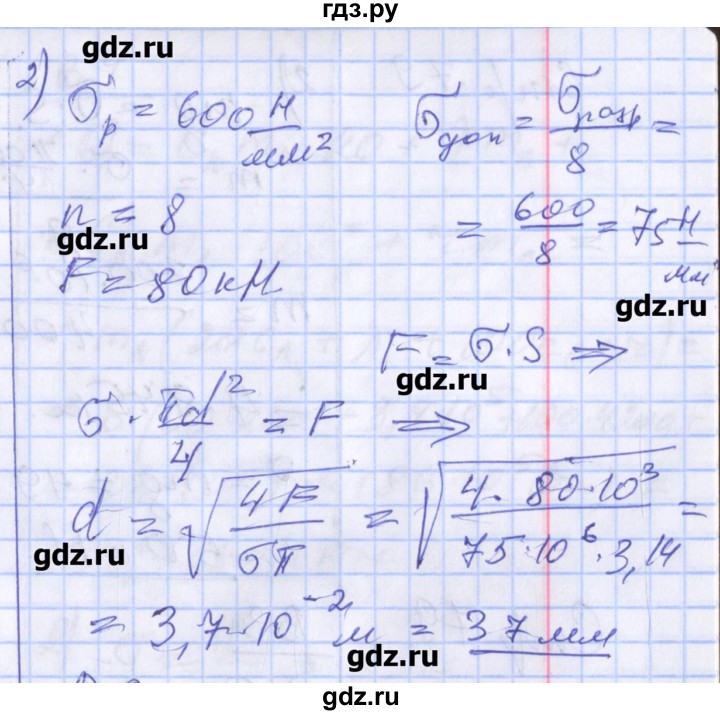 гдз.ру
gdz.ru
2) σр = 600 Н/мм² σдоп = σразр/8 =
n = 8 = 600/8 = 75 Н/мм
gdz.ru
F = 80 кН
gdz.ru
F = σ·S ⇒
gdz.ru
σ · πd²/4 = F ⇒
d = √(4F/σπ) = √(4·80·10³/75·10⁶·3,14) =
gdz.ru
= 3,7·10⁻² м = 37 мм
gdz.ru
gdz.ru